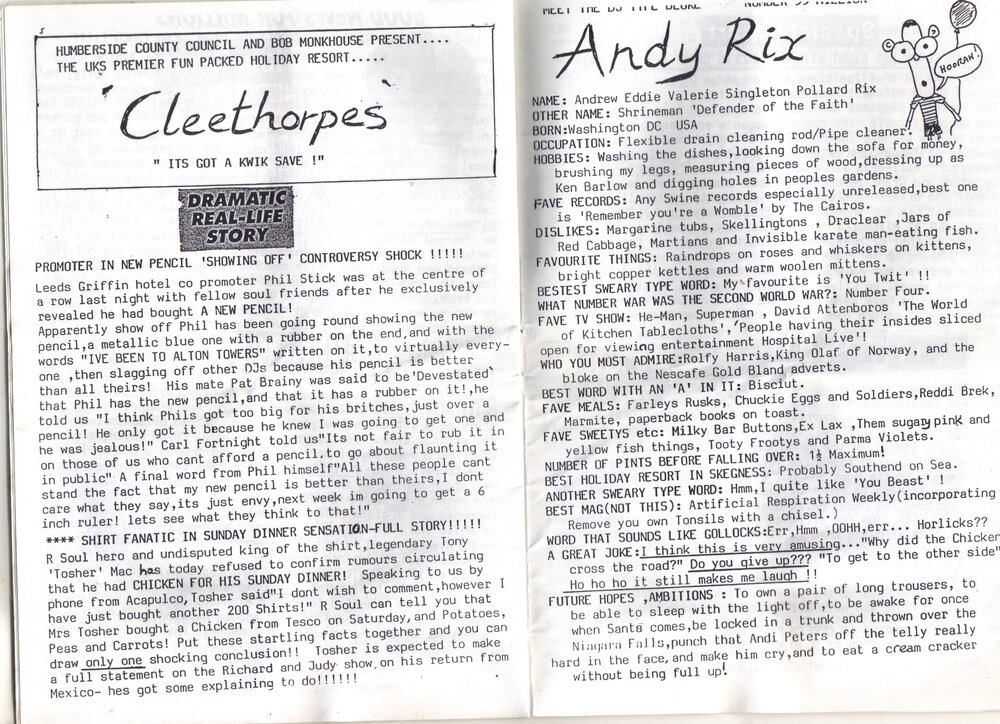 5
HUMBERSIDE COUNTY COUNCIL AND BOB MONKHOUSE PRESENT....
THE UKS PREMIER FUN PACKED HOLIDAY RESORT.....
'Cleethorpes'
" ITS GOT A KWIK SAVE !"
DRAMATIC
REAL-LIFE
STORY
PROMOTER IN NEW PENCIL 'SHOWING OFF' CONTROVERSY SHOCK !!!!!
Leeds Griffin hotel co promoter Phil Stick was at the centre of
a row last night with fellow soul friends after he exclusively
revealed he had bought A NEW PENCIL!
Apparently show off Phil has been going round showing the new
pencil,a metallic blue one with a rubber on the end,and with the
words "IVE BEEN TO ALTON TOWERS" written on it,to virtually every-
one ,then slagging off other DJs because his pencil is better
than all theirs! His mate Pat Brainy was said to be'Devestated'
that Phil has the new pencil,and that it has a rubber on it!,he
told us "I think Phils got too big for his britches,just over a
pencil! He only got it because he knew I was going to get one and
he was jealous!" Carl Fortnight told us"Its not fair to rub it in
on those of us who cant afford a pencil,to go about flaunting it
in public" A final word from Phil himself"All these people cant
stand the fact that my new pencil is better than theirs,I dont
care what they say,its just envy,next week im going to get a 6
inch ruler! lets see what they think to that!"
**** SHIRT FANATIC IN SUNDAY DINNER SENSATION-FULL STORY!!!!!
R Soul hero and undisputed king of the shirt,legendary Tony
'Tosher' Mac has today refused to confirm rumours circulating
that he had CHICKEN FOR HIS SUNDAY DINNER! Speaking to us by
phone from Acapulco,Tosher said"I dont wish to comment,however I
have just bought another 200 Shirts!" R Soul can tell you that
Mrs Tosher bought a Chicken from Tesco on Saturday,and Potatoes,
Peas and Carrots! Put these startling facts together and you can
draw only one shocking conclusion!! Tosher is expected to make
a full statement on the Richard and Judy show on his return from
Mexico- hes got some explaining to do!!!!!!
MEET THE DJ TYPE BLOKE NUMBER 99 MILLION
Andy Rix
HOORAH!
NAME: Andrew Eddie Valerie Singleton Pollard Rix
OTHER NAME: Shrineman 'Defender of the Faith'
BORN:Washington DC USA
OCCUPATION: Flexible drain cleaning rod/Pipe cleaner.
HOBBIES: Washing the dishes,looking down the sofa for money,
brushing my legs, measuring pieces of wood,dressing up as
Ken Barlow and digging holes in peoples gardens.
FAVE RECORDS: Any Swine records especially unreleased,best one
is 'Remember you're a Womble' by The Cairos.
DISLIKES: Margarine tubs, Skellingtons , Draclear ,Jars of
Red Cabbage, Martians and Invisible karate man-eating fish.
FAVOURITE THINGS: Raindrops on roses and whiskers on kittens,
bright copper kettles and warm woolen mittens.
BESTEST SWEARY TYPE WORD: My favourite is 'You Twit' !!
WHAT NUMBER WAR WAS THE SECOND WORLD WAR?: Number Four.
FAVE TV SHOW: He-Man, Superman , David Attenboros 'The World
of Kitchen Tablecloths','People having their insides sliced
open for viewing entertainment Hospital Live'!
WHO YOU MOST ADMIRE:Rolfy Harris,King Olaf of Norway, and the
bloke on the Nescafe Gold Bland adverts.
BEST WORD WITH AN 'A' IN IT: Bisciut.
FAVE MEALS: Farleys Rusks, Chuckie Eggs and Soldiers,Reddi Brek,
Marmite, paperback books on toast.
FAVE SWEETYS etc: Milky Bar Buttons,Ex Lax ,Them sugary pink and
yellow fish things, Tooty Frootys and Parma Violets.
NUMBER OF PINTS BEFORE FALLING OVER: 1½ Maximum!
BEST HOLIDAY RESORT IN SKEGNESS: Probably Southend on Sea.
ANOTHER SWEARY TYPE WORD: Hmm,I quite like 'You Beast' !
BEST MAG(NOT THIS): Artificial Respiration Weekly(incorporating
Remove you own Tonsils with a chisel.)
WORD THAT SOUNDS LIKE GOLLOCKS:Err,Hmm ,OOHH,err... Horlicks??
A GREAT JOKE:I think this is very amusing..."Why did the Chicken
cross the road?" Do you give up??? "To get to the other side"
Ho ho ho it still makes me laugh !!
FUTURE HOPES ,AMBITIONS : To own a pair of long trousers, to
be able to sleep with the light off,to be awake for once
when Santa comes,be locked in a trunk and thrown over the
Niagara Falls,punch that Andi Peters off the telly really
hard in the face,and make him cry,and to eat a cream cracker
without being full up!